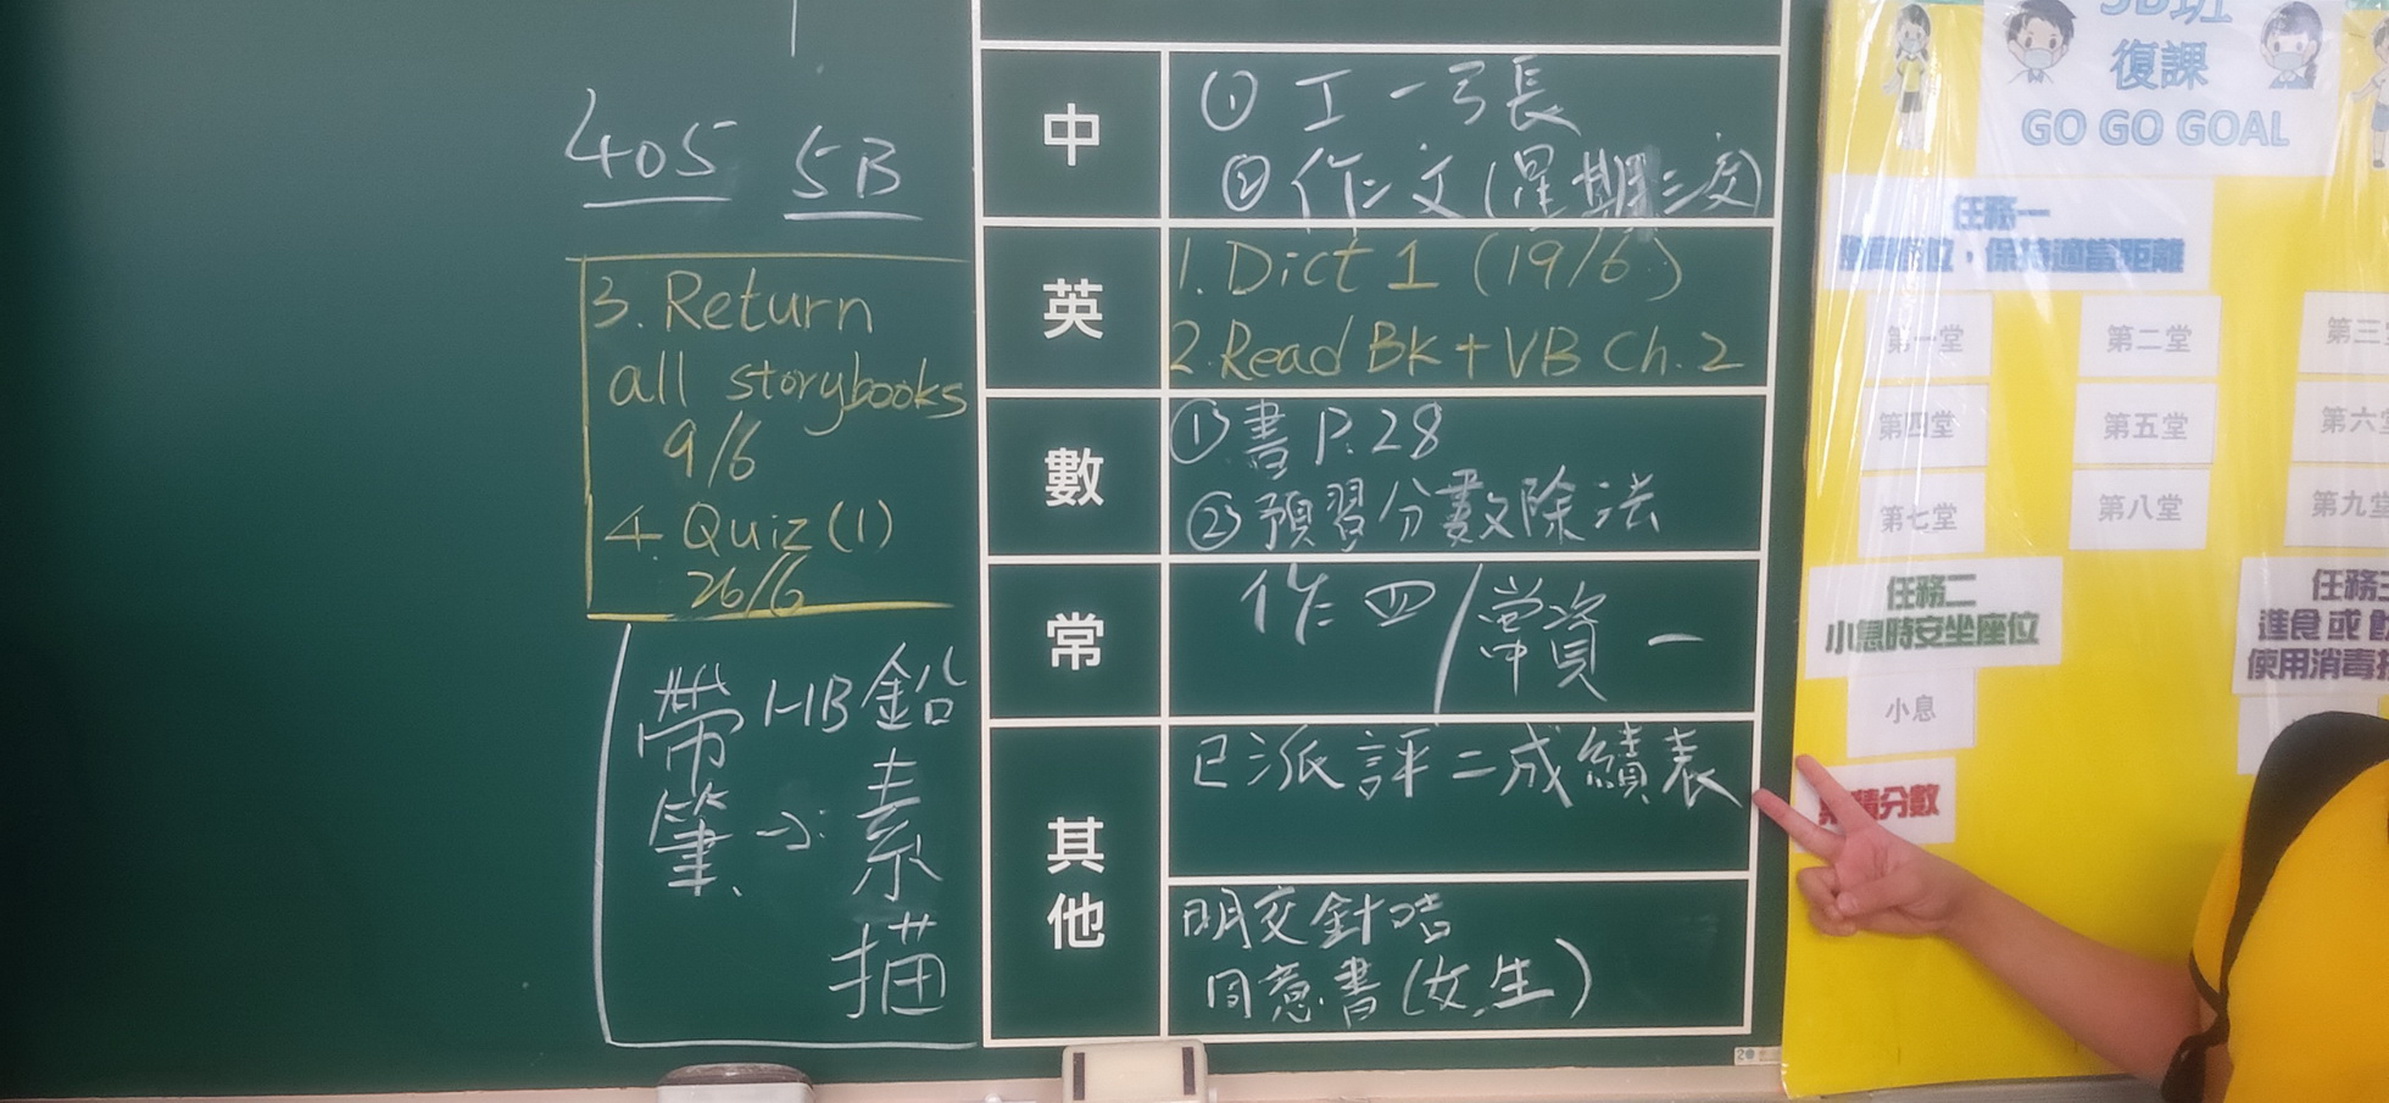 405 5B
3. Return
all storybooks
9/6
4. Quiz (1)
26/6
帶HB鉛
筆→素
描
中
① 工一 張
② 作文(星期三交)
英
1. Dict 1 (19/6)
2. Read Bk + VB Ch. 2
數
① 書 P.28
② 預習分數除法
常
作四/常資一
其他
已派評二成績表
明交針咭
同意書(女生)
5B班
復課
GO GO GOAL
任務一
座位,保持適當距離
第一堂 第二堂 第三堂
第四堂 第五堂 第六堂
第七堂 第八堂 第九堂
任務二
小息時安坐座位
小息
任務三
進食或
使用消毒
積分數